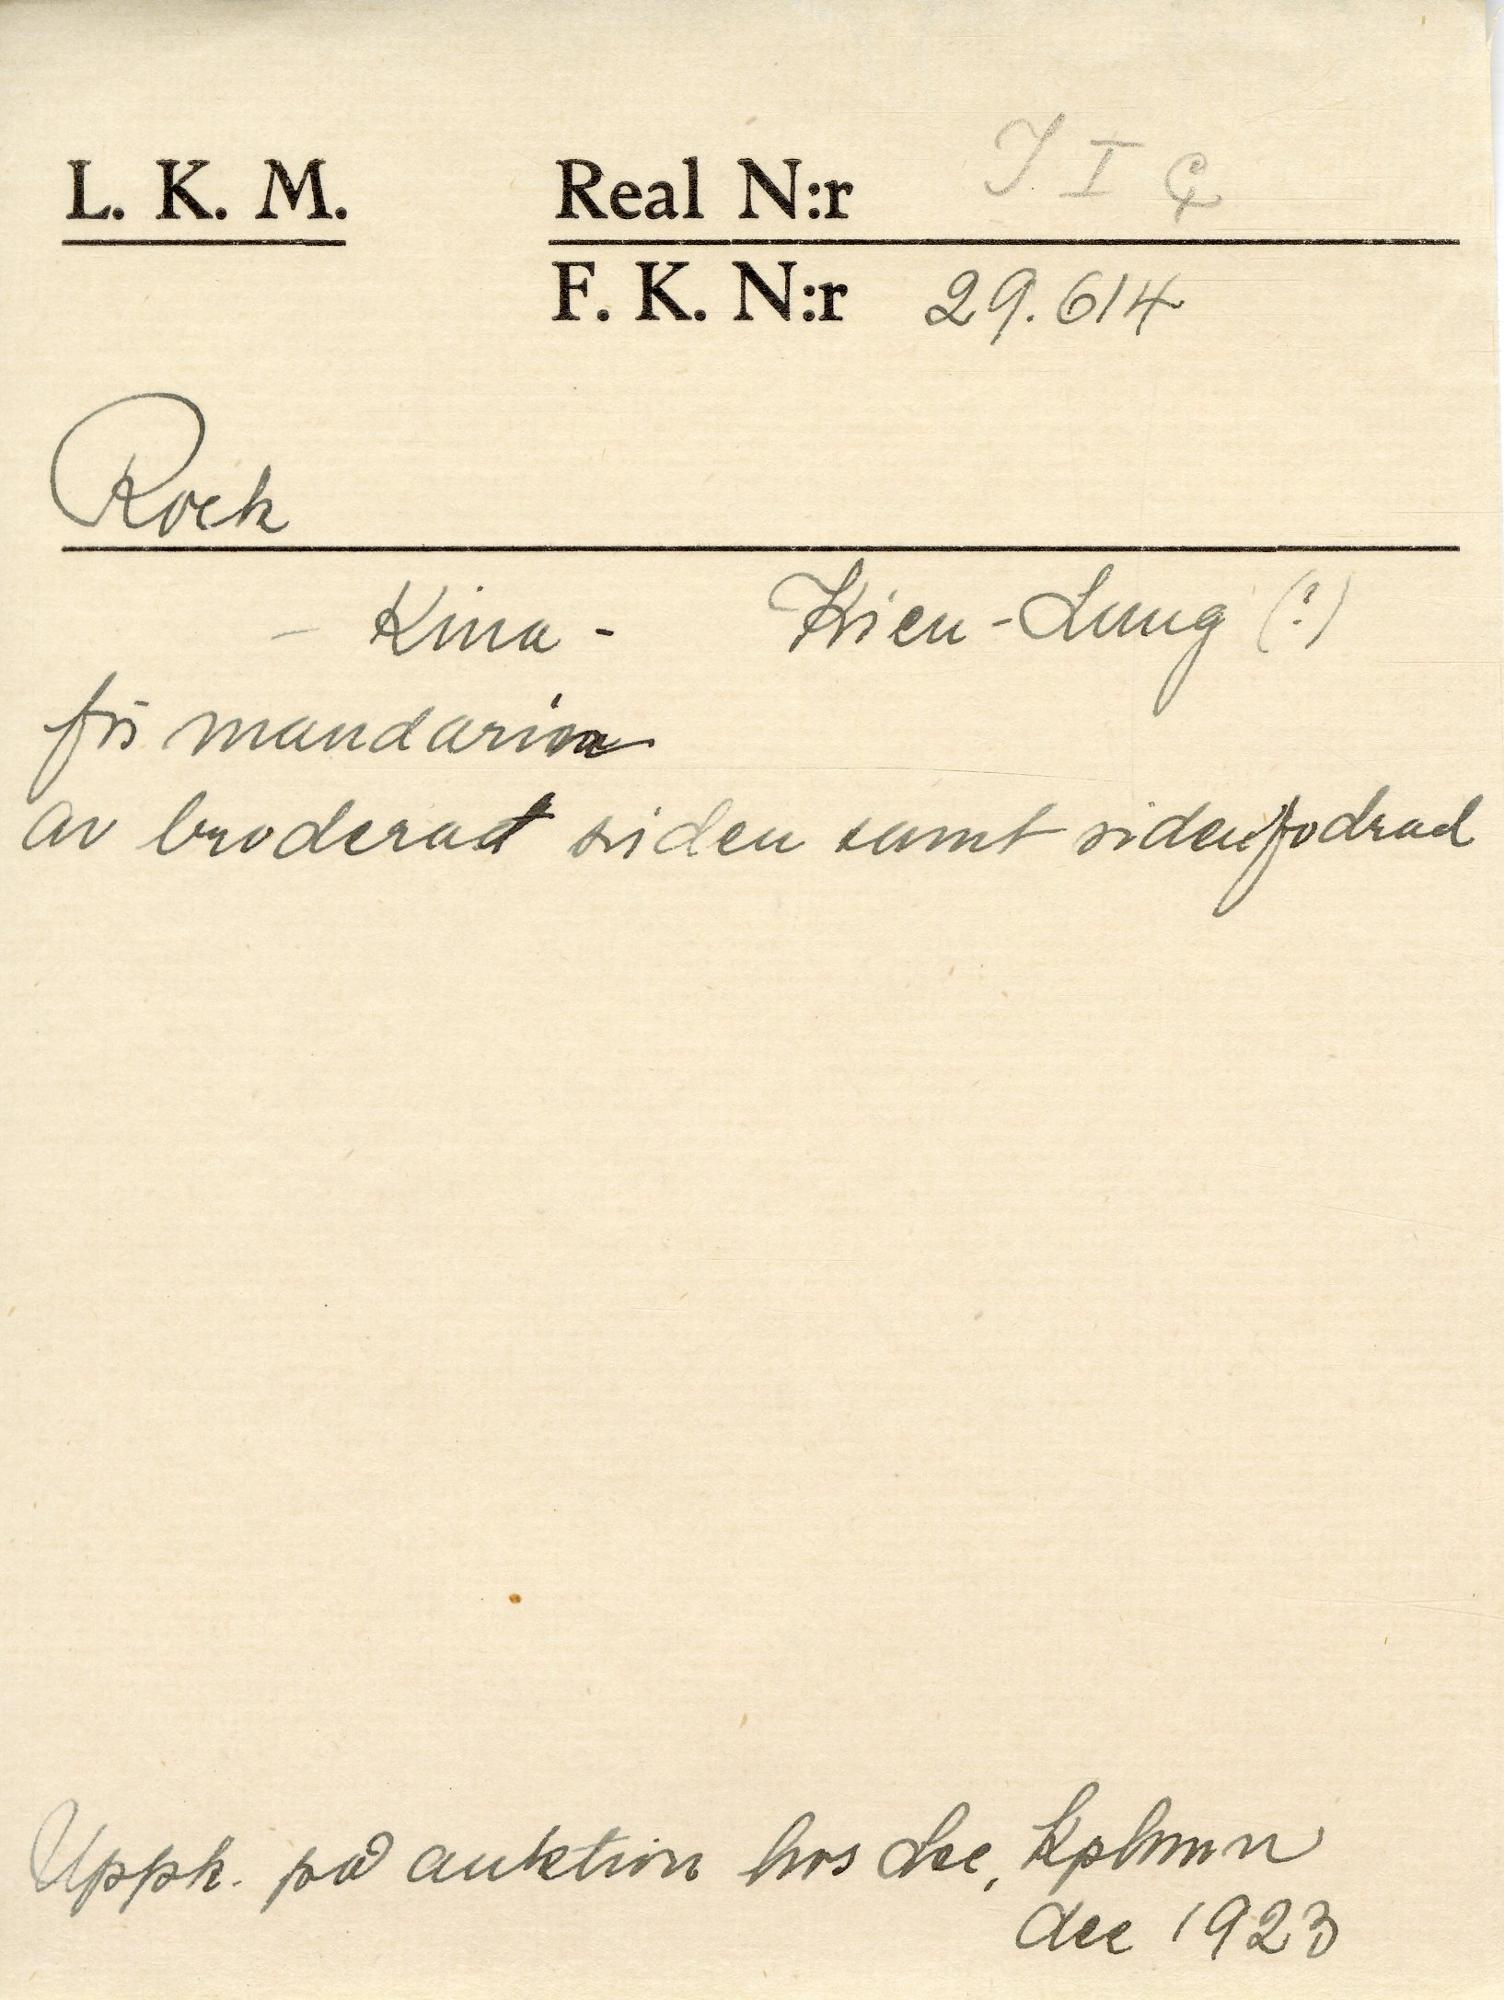 L. K. M. Real N:r J I
F. K. N:r 29.614
Rock
- Kina - Kien-Lung (?)
för mandarin
av broderat siden samt sidenfodrad
Uppk. på auktion hos Lee, Kphmn
dec 1923